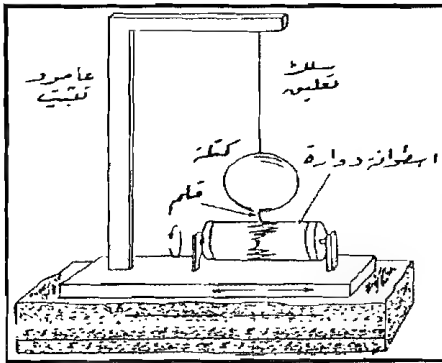 عامود
تثبيت
سلك
تعليق
كتلة
اسطوانة دوارة
قلم